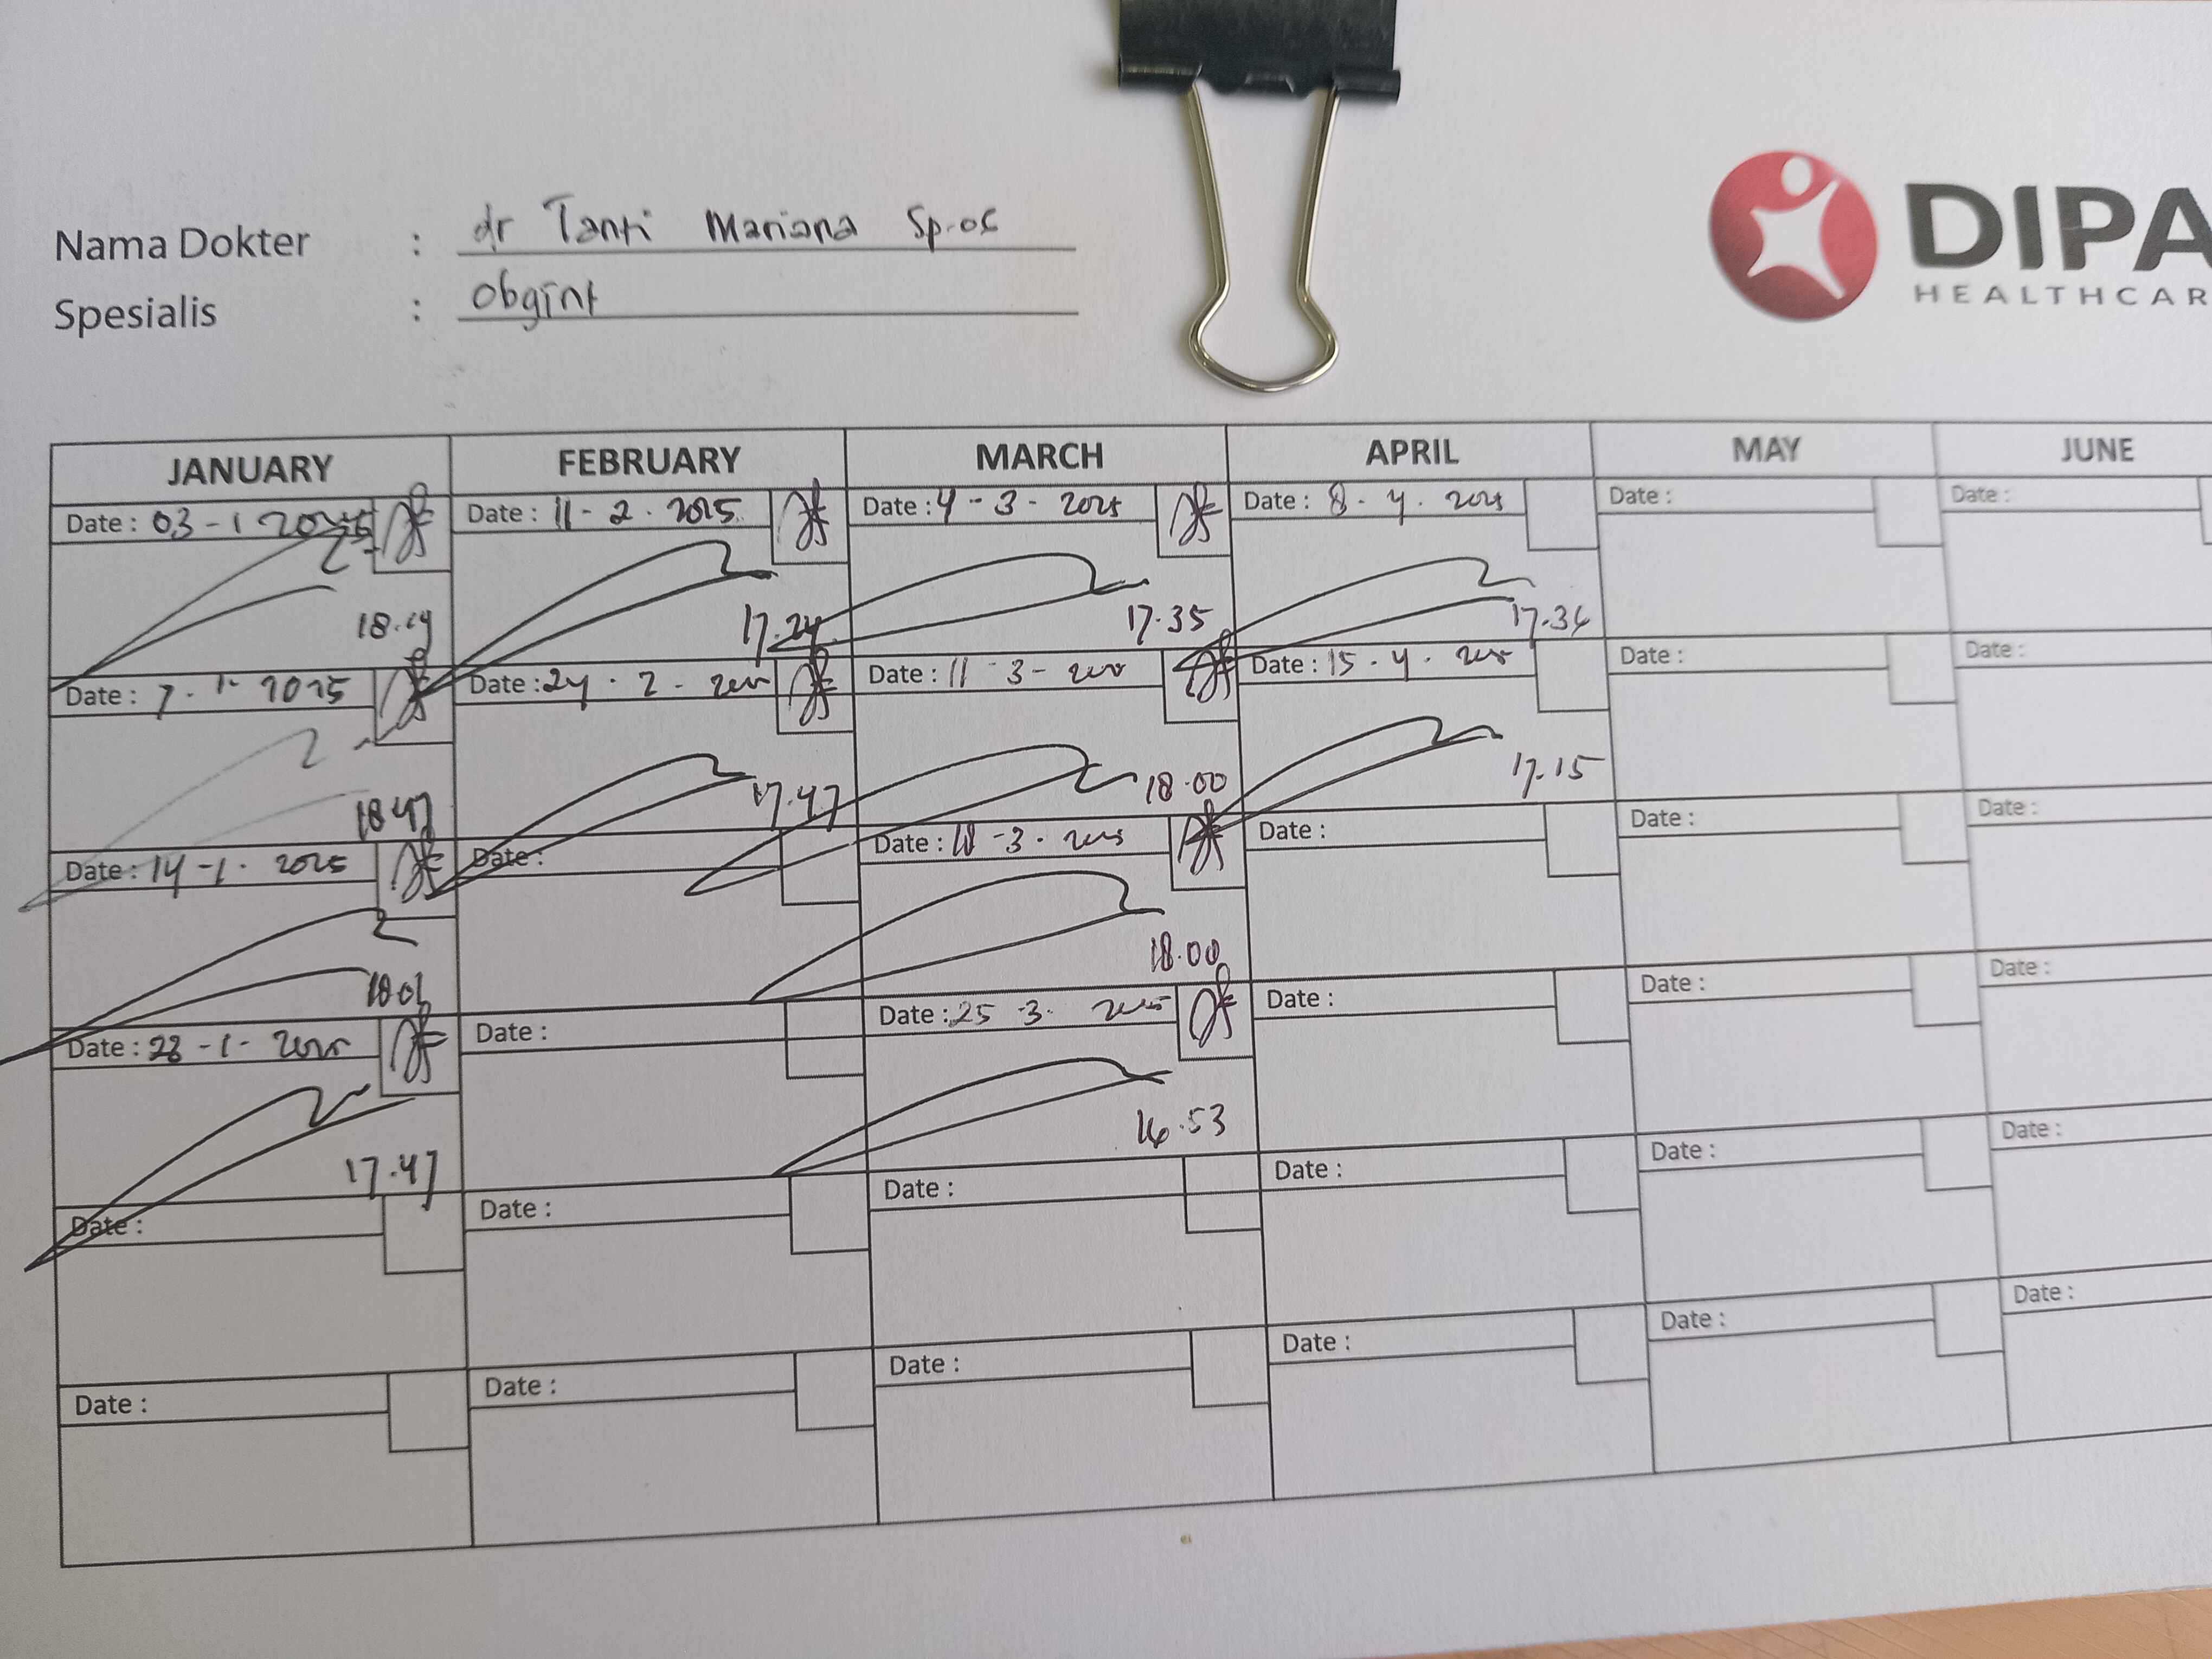 Nama Dokter : dr Tanti Mariana Sp.OG
Spesialis : Obgint
DIPA
HEALTHCAR
JANUARY FEBRUARY MARCH APRIL MAY JUNE
Date : 03 - 1 2025 Date : 11 - 2 . 2025 Date : 4 - 3 - 2025 Date : 8 . 4 . 2025 Date : Date :
18.19 17.24 17.35 17.36
Date : 7 . 1 . 2025 Date : 24 . 2 - 2025 Date : 11 - 3 - 2025 Date : 15 . 4 . 2025 Date : Date :
18 47 17.47 18.00 17.15
Date : 14 - 1 . 2025 Date : Date : 18 - 3 . 2025 Date : Date : Date :
18 01 18.00
Date : 28 - 1 - 2025 Date : Date : 25 - 3 . 2025 Date : Date : Date :
17.47 16.53
Date : Date : Date : Date : Date : Date :
Date : Date : Date : Date : Date : Date :